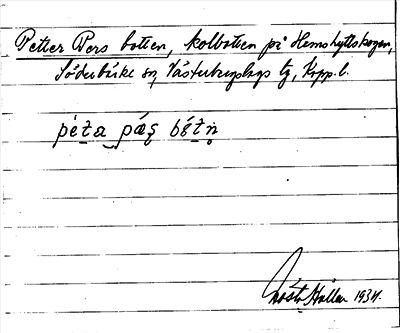 Petter Pers botten, kolbotten på Hemshyttskogen,
Söderbärke sn, Västerbergslags tg, Kopp. l.
pèta páş bótṇ
Gösta Hallan 1934.